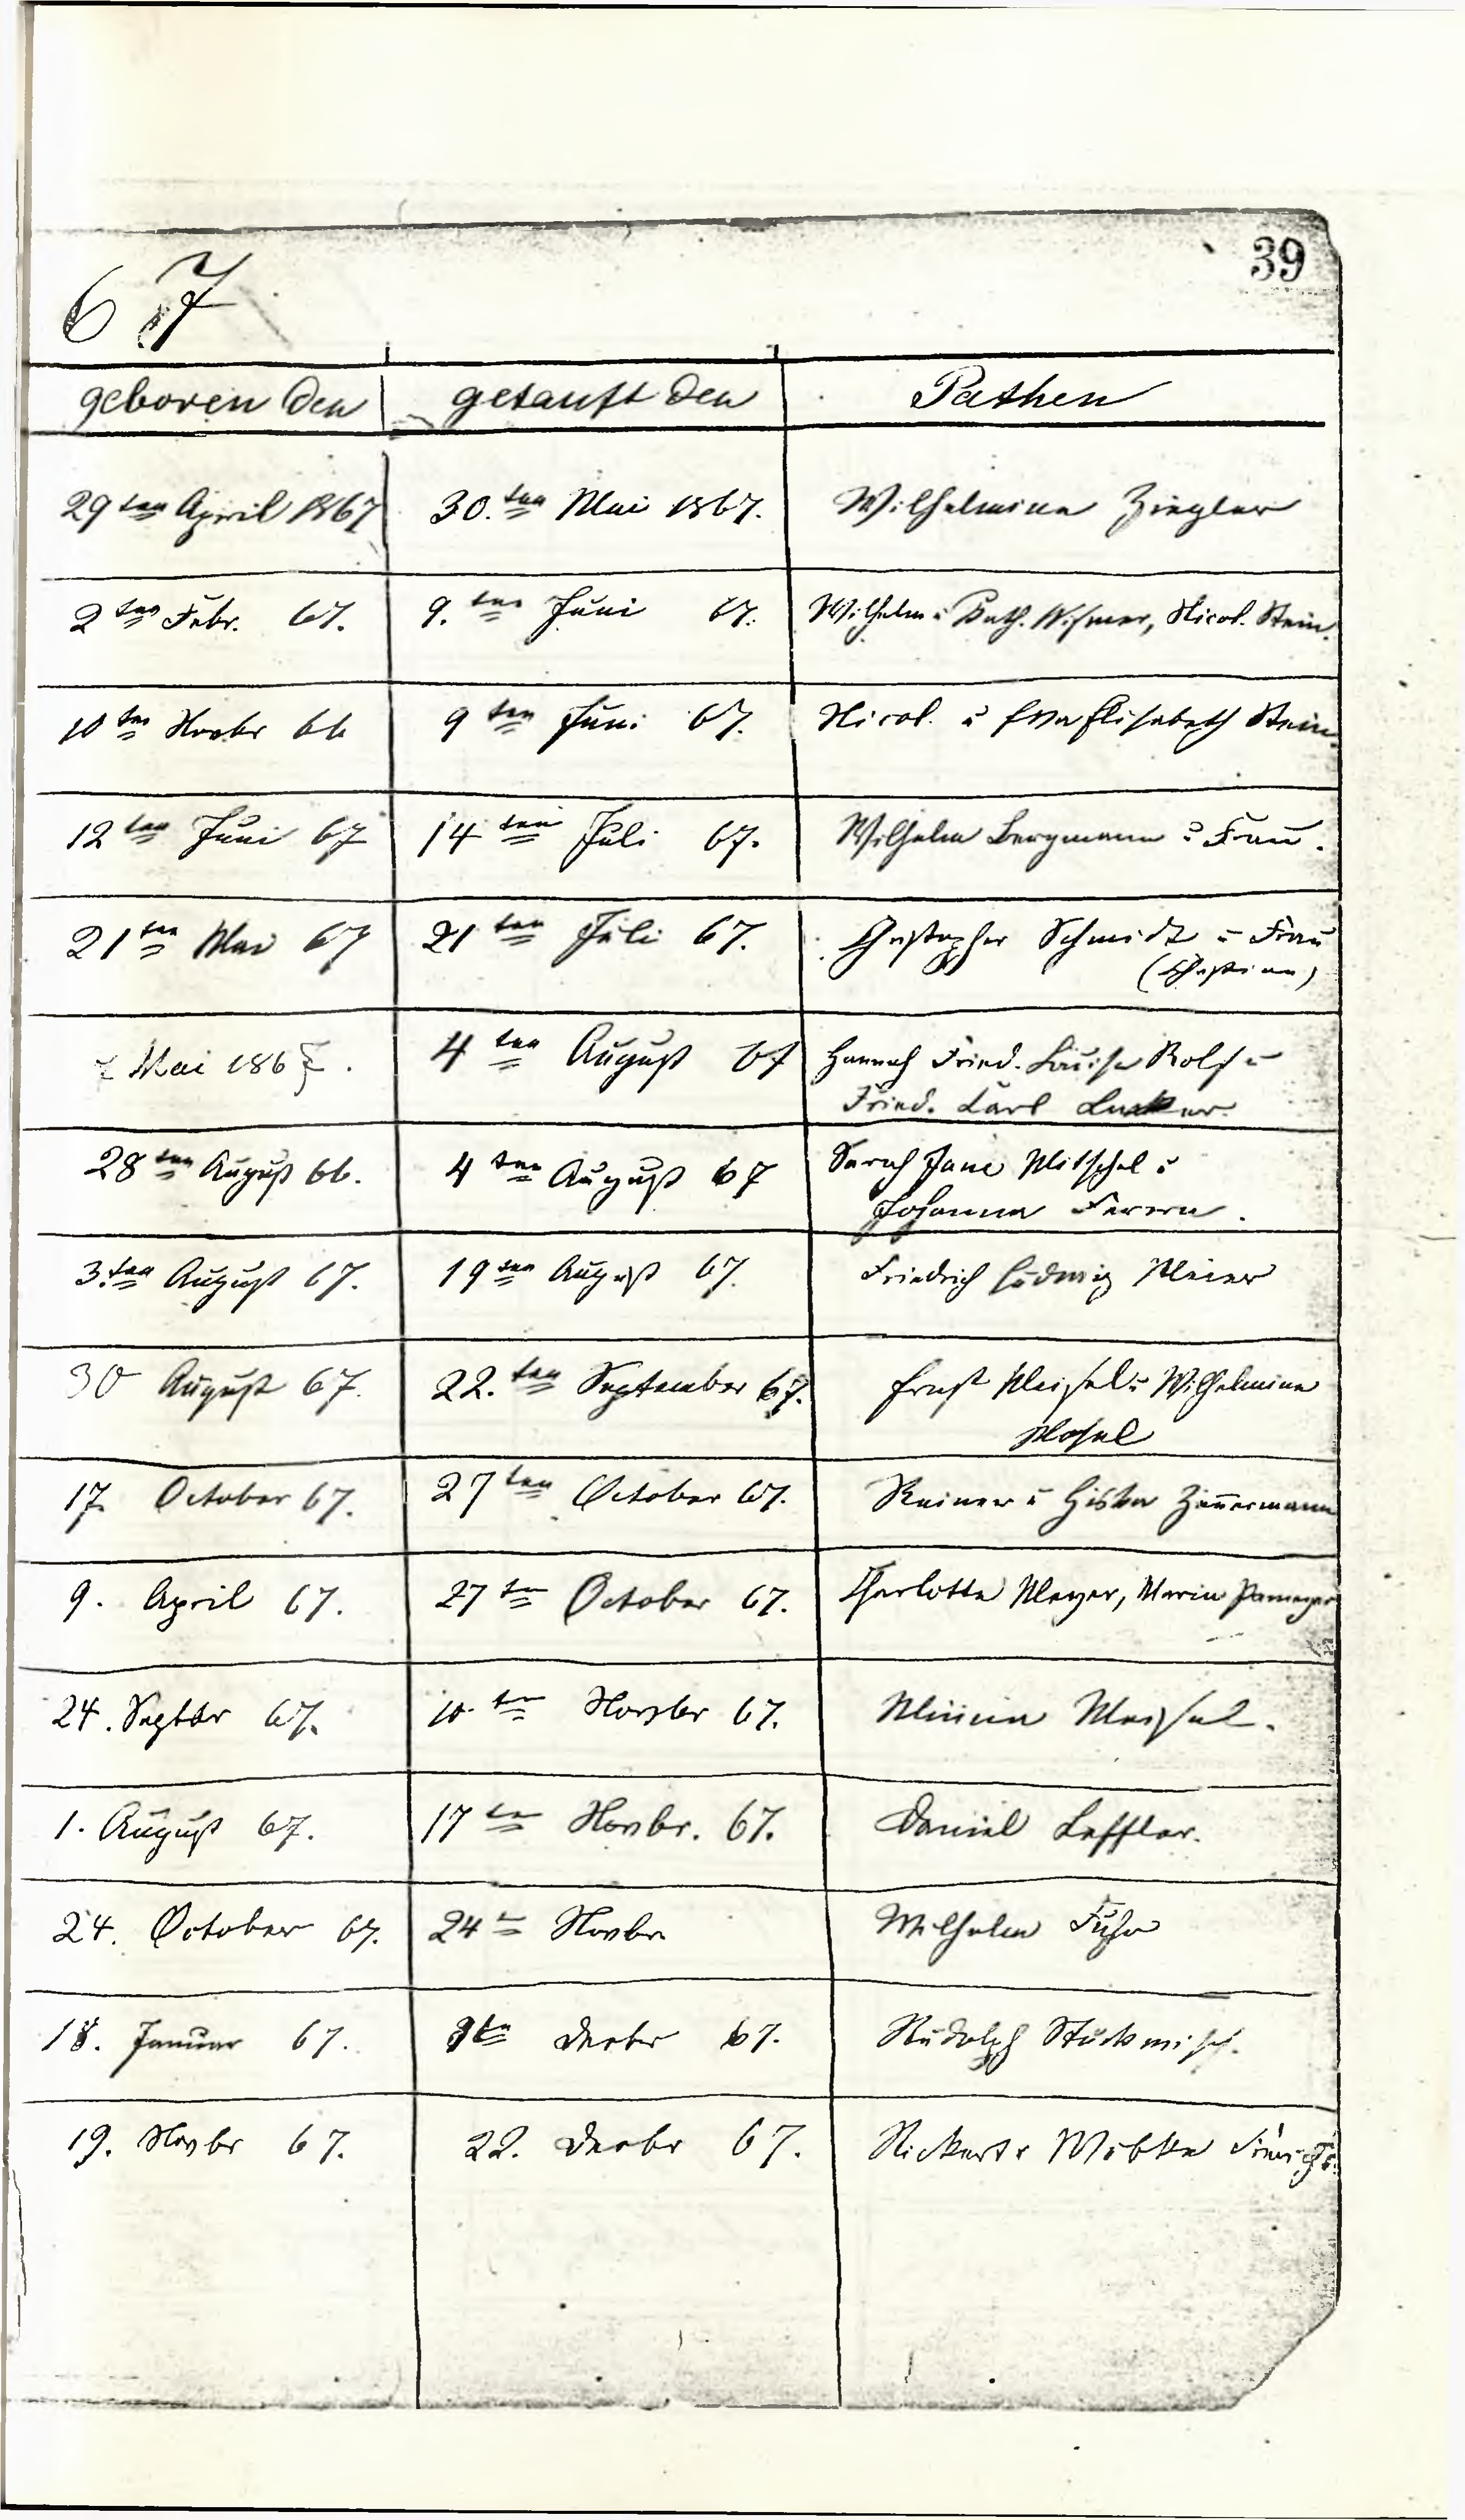 39
67
geboren den getauft den Pathen
29ten April 1867 30.ten Mai 1867. Wilhelmina Ziegler
2ten Febr. 67. 9.ten Juni 67. Wilhelm u Cath. Wismer, Nicol. Stein.
10ten Novbr 66 9ten Juni 67. Nicol. u Eva Elisabeth Stein.
12ten Juni 67 14ten Juli 67. Wilhelm Bergmann u Frau.
21ten Mai 67 21ten Juli 67. Christopher Schmidt u Frau
(Christine)
Mai 1867. 4ten August 67 Hannah Fried. Louise Rolf u
Fried. Carl
28ten August 66. 4ten August 67 Sarah Jane Mitschel u
Johanna
3.ten August 67. 19ten August 67. Friedrich Ludwig Meier
30 August 67. 22.ten September 67. Ernst Meisel u Wilhelmine
Mosel
17. October 67. 27ten October 67. Reiner u Zimmermann
9. April 67. 27ten October 67. Charlotte Meyer, Marie
24. Septbr 67. 10.ten Novbr 67. Minna Meisel.
1. August 67. 17ten Novbr. 67. Daniel Leffler.
24. October 67. 24ten Novbr Wilhelm Fuhr
18. Januar 67. 8ten Decbr 67. Rudolph
19. Novbr 67. 22. Decbr 67. Rickert u Wibke